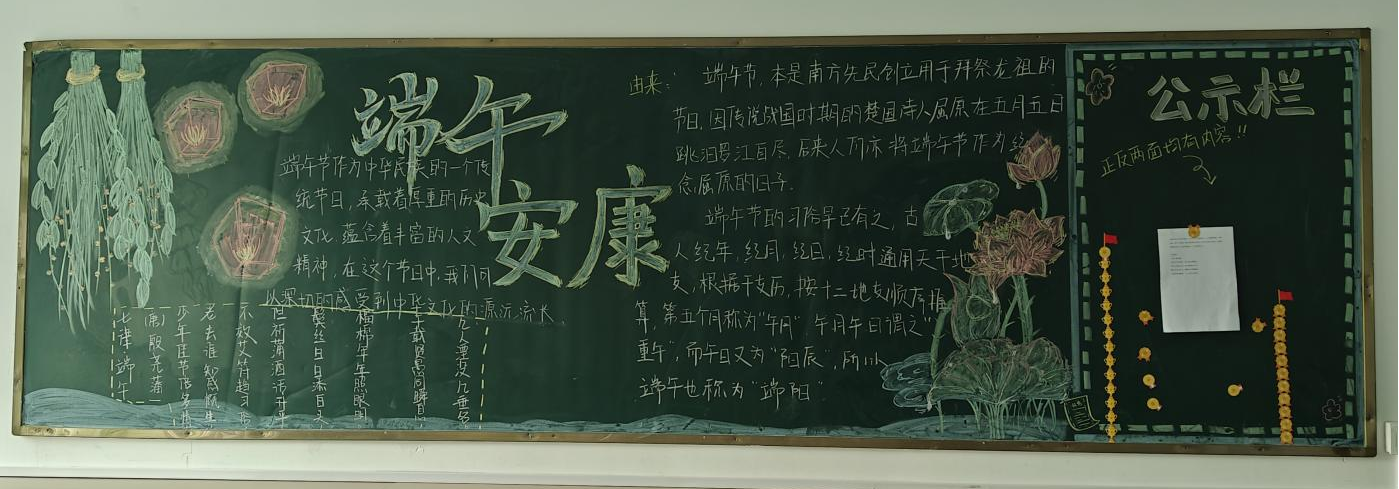 端午
安康
端午节作为中华民族的一个传
统节日，承载着厚重的历史
文化，蕴含着丰富的人文
精神，在这个节日中，我们可
以深切的感受到中华文化的源远流长。
七律·端午
（唐）殷尧藩
少年佳节倍多情
老去谁知感慨生
不效艾符趋习俗
但祈蒲酒话升平
鬓丝日日添白头
榴锦年年照眼明
千载贤愚同瞬息
几人湮没几垂名
由来：端午节，本是南方先民创立用于拜祭龙祖的
节日，因传说战国时期的楚国诗人屈原在五月五日
跳汨罗江自尽，后来人们亦将端午节作为纪
念屈原的日子。
端午节的习俗早已有之，古
人纪年，纪月，纪日，纪时通用天干地
支，根据干支历，按十二地支顺序推
算，第五个月称为"午月"，午月午日谓之"
重午"，而午日又为"阳辰"，所以
端午也称为"端阳"
公示栏
正反两面均有内容!!